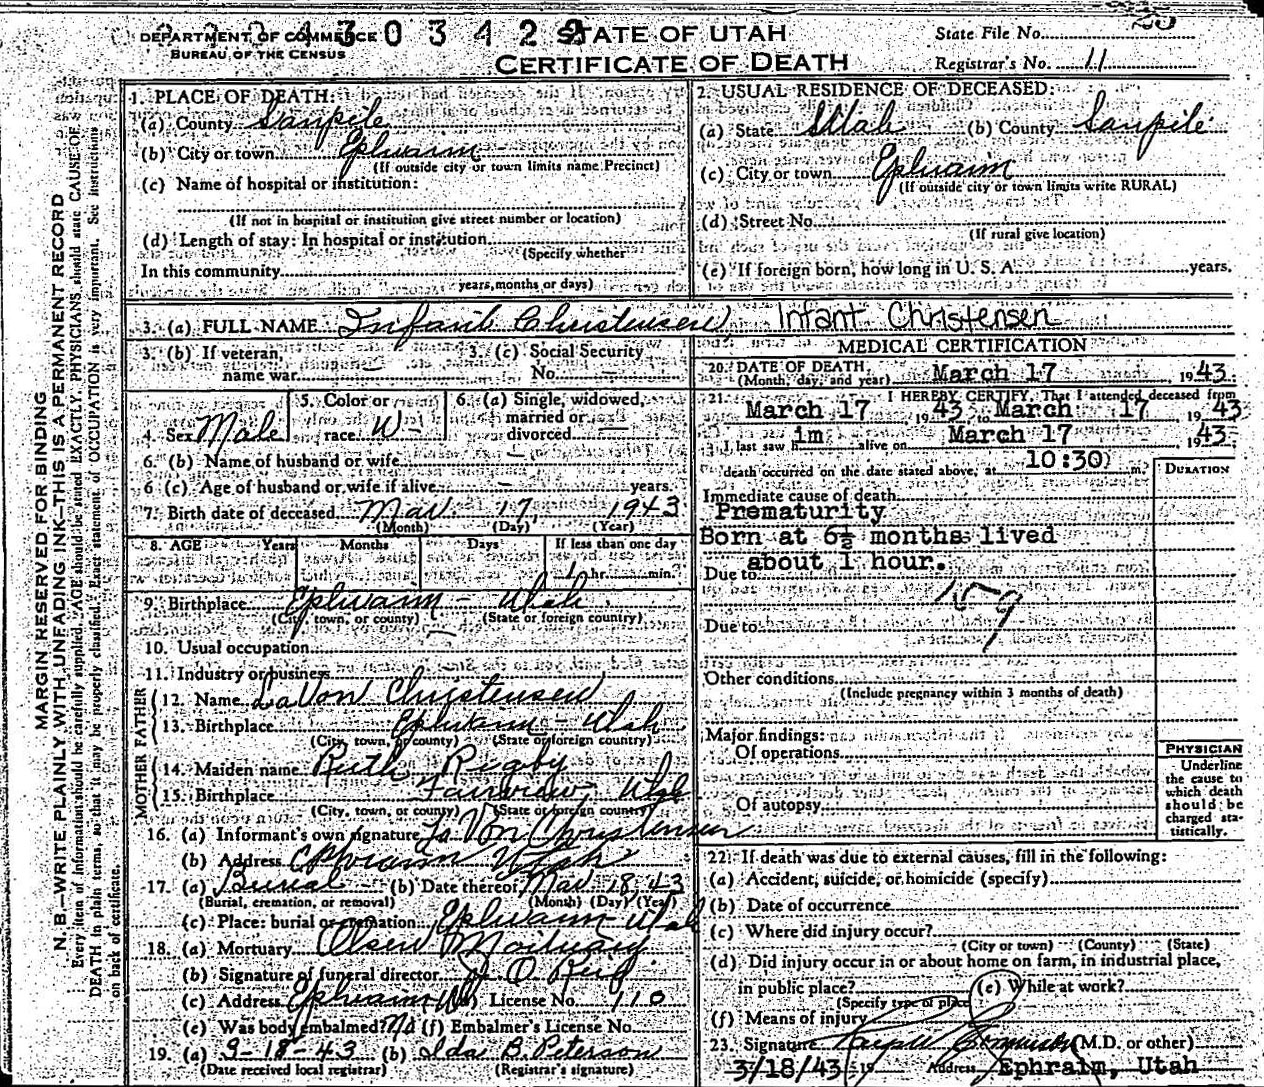 DEPARTMENT OF COMMERCE
BUREAU OF THE CENSUS
303429
STATE OF UTAH
CERTIFICATE OF DEATH
State File No. 25
Registrar's No. 11
MARGIN RESERVED FOR BINDING
N. B.—WRITE PLAINLY WITH UNFADING INK—THIS IS A PERMANENT RECORD
Every item of information should be carefully supplied. AGE should be stated EXACTLY. PHYSICIANS should state CAUSE OF
DEATH in plain terms, so that it may be properly classified. Exact statement of OCCUPATION is very important. See instructions
on back of certificate.
1. PLACE OF DEATH:
(a) County Sanpete
(b) City or town Ephraim
(If outside city or town limits name Precinct)
(c) Name of hospital or institution:
(If not in hospital or institution give street number or location)
(d) Length of stay: In hospital or institution
(Specify whether
In this community
years, months or days)
2. USUAL RESIDENCE OF DECEASED:
(a) State Utah (b) County Sanpete
(c) City or town Ephraim
(If outside city or town limits write RURAL)
(d) Street No.
(If rural give location)
(e) If foreign born, how long in U. S. A. years.
3. (a) FULL NAME Infant Christensen Infant Christensen
3. (b) If veteran, name war — 3. (c) Social Security No. —
4. Sex Male 5. Color or race W- 6. (a) Single, widowed, married or divorced —
6. (b) Name of husband or wife —
6 (c) Age of husband or wife if alive - years.
7. Birth date of deceased Mar. 17, 1943
(Month) (Day) (Year)
8. AGE Years Months Days If less than one day
1 hr. min.
9. Birthplace Ephraim - Utah
(City, town, or county) (State or foreign country)
10. Usual occupation —
11. Industry or business
FATHER
12. Name LaVon Christensen
13. Birthplace Ephraim - Utah
(City, town, or county) (State or foreign country)
MOTHER
14. Maiden name Ruth Rigby
15. Birthplace Fairview - Utah
(City, town, or county) (State or foreign country)
16. (a) Informant's own signature La Von Christensen
(b) Address Ephraim Utah
17. (a) Burial (b) Date thereof Mar 18, 43
(Burial, cremation, or removal) (Month) (Day) (Year)
(c) Place: burial or cremation Ephraim - Utah
18. (a) Mortuary Olsen Mortuary
(b) Signature of funeral director
(c) Address Ephraim License No. 110
(e) Was body embalmed? No (f) Embalmer's License No.
19. (a) 9-18-43 (b) Ida B. Peterson
(Date received local registrar) (Registrar's signature)
MEDICAL CERTIFICATION
20. DATE OF DEATH
(Month, day, and year) March 17, 1943.
21. I HEREBY CERTIFY, That I attended deceased from
March 17, 1943, to March 17 1943
I last saw him alive on March 17 1943.
death occurred on the date stated above, at 10:30 m.
DURATION
Immediate cause of death
Prematurity
Born at 6½ months lived
about 1 hour.
Due to
159
Due to
Other conditions
(Include pregnancy within 3 months of death)
Major findings:
Of operations
Of autopsy
PHYSICIAN
Underline
the cause to
which death
should be
charged sta-
tistically.
22. If death was due to external causes, fill in the following:
(a) Accident, suicide, or homicide (specify)
(b) Date of occurrence
(c) Where did injury occur?
(City or town) (County) (State)
(d) Did injury occur in or about home on farm, in industrial place,
in public place? (e) While at work?
(Specify type of place)
(f) Means of injury
23. Signature (M.D. or other)
3/18/43 19 Address Ephraim, Utah